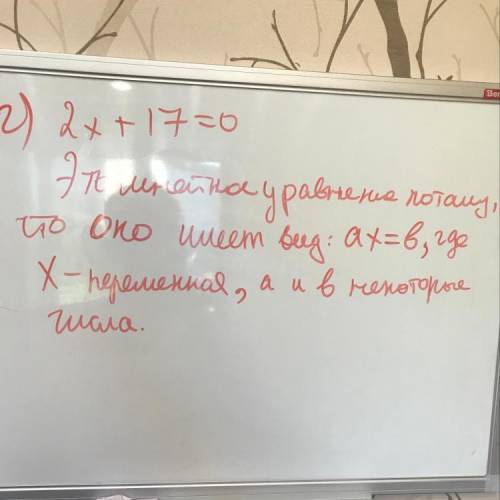 г) 2x + 17 = 0
Эт линейное уравнение потому,
что оно имеет вид: ax = в, где
X - переменная, а и в некоторые
числа.